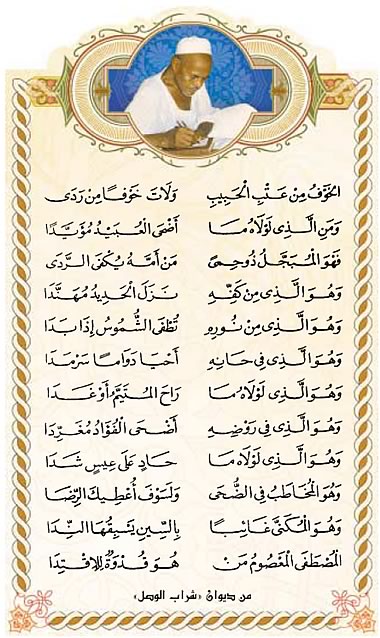 الخَوْفُ مِنْ عَتْبِ الْحَبِيبِ وَلَاتَ خَوْفًا مِنْ رَدَى
وَمَنِ الَّذِي لَوْلَاهُ مَا أَضْحَى الْعُبَيْدُ مُؤَيَّدًا
فَهْوَ الْمُبَجَّلُ ذُو حِمىً مَنْ أَمَّهُ يُكْفَى الرَّدَى
وَهُوَ الَّذِي مِنْ كَفِّهِ نَزَلَ الْحَدِيدُ مُهَنَّدَا
وَهُوَ الَّذِي مِنْ نُورِهِ تُطْفَى الشُّمُوسُ إِذَا بَدَا
وَهُوَ الَّذِي فِي حَانِهِ أَحْيَا دَوَامًا سَرْمَدَا
وَهُوَ الَّذِي لَوْلَاهُ مَا رَاحَ الْمُتَيَّمُ أَوْ غَدَا
وَهُوَ الَّذِي فِي رَوْضِهِ أَضْحَى الْفُؤَادُ مُغَرِّدَا
وَهُوَ الَّذِي لَوْلَاهُ مَا حَادٍ عَلَى عِيسٍ شَدَا
وَهُوَ الْمُخَاطَبُ فِي الضُّحَى وَلَسَوْفَ أُعْطِيكَ الرِّضَا
وَهُوَ الْمُكَنَّى غَائِبًا بِالسِّينِ يَسْبِقُهَا النِّدَا
الْمُصْطَفَى الْمَعْصُومُ مَنْ هُوَ قُدْوَةٌ لِلِاقْتِدَا
من ديوان «شراب الوصل»